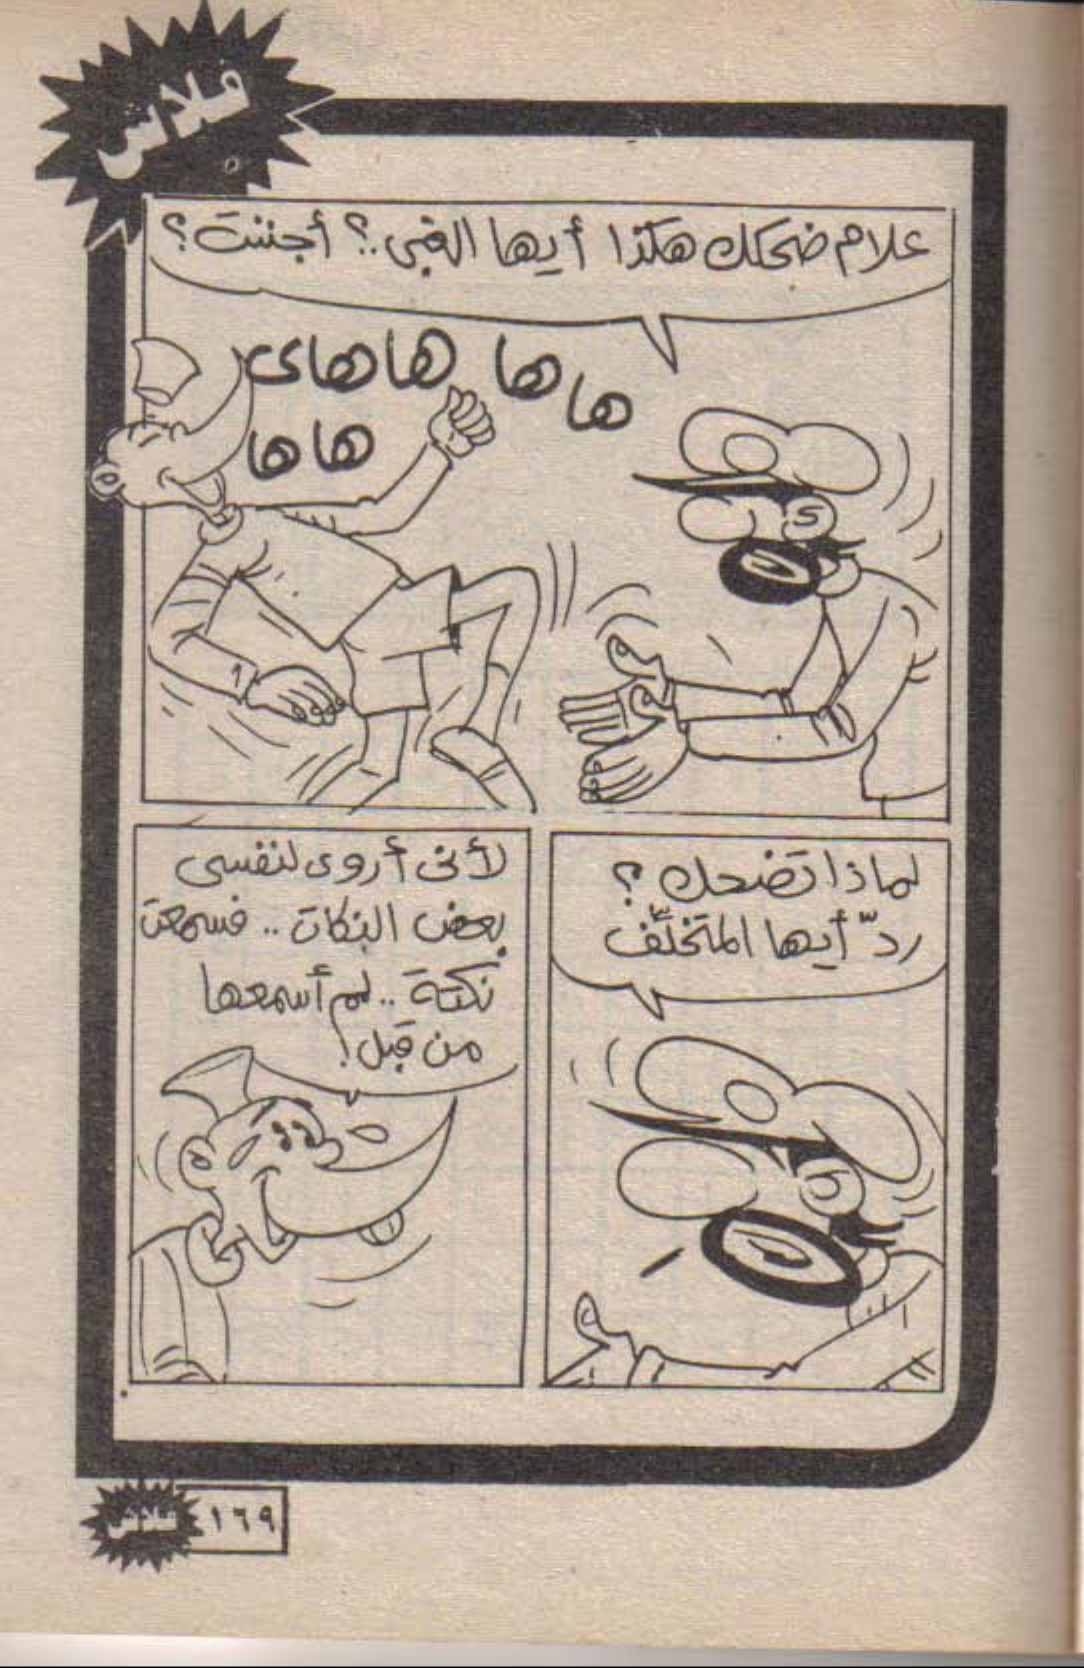 فلاش
علام ضحكك هكذا أيها الغبى.. ؟ أجننت ؟
ها ها هاهاى
ها ها
لماذا تضحك ؟
ردّ أيها المتخلّف
لأنى أروى لنفسى
بعض النكات .. فسمعت
نكتة .. لم أسمعها
من قبل !
١٦٩
فلاش